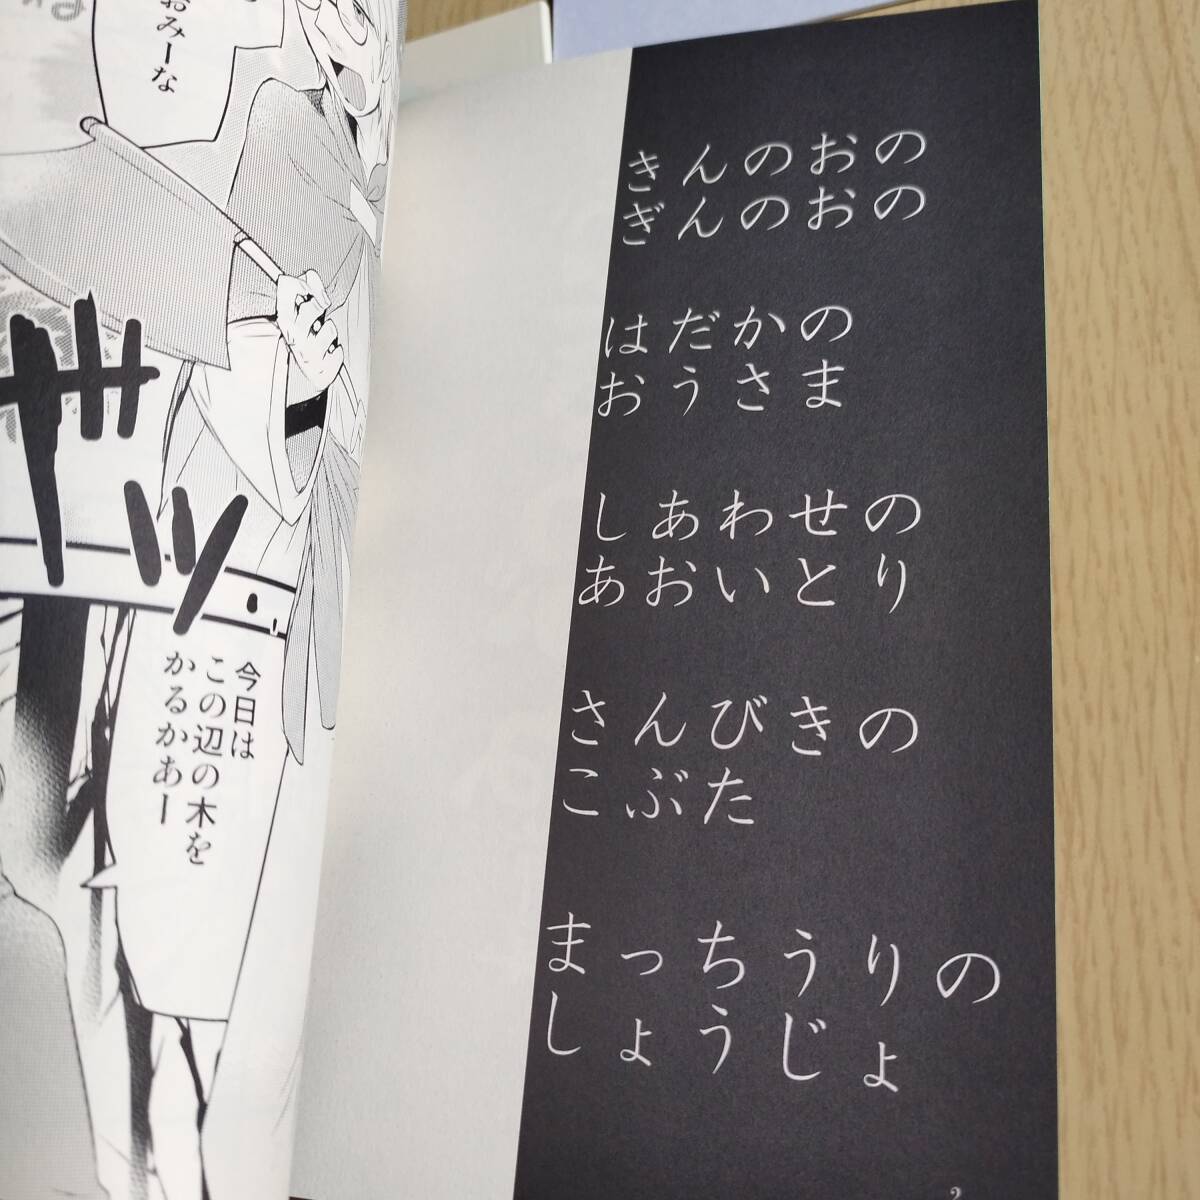 おみーな
ザザッ
今日は
この辺の木を
かるかあー
きんのおの
ぎんのおの
はだかの
おうさま
しあわせの
あおいとり
さんびきの
こぶた
まっちうりの
しょうじょ